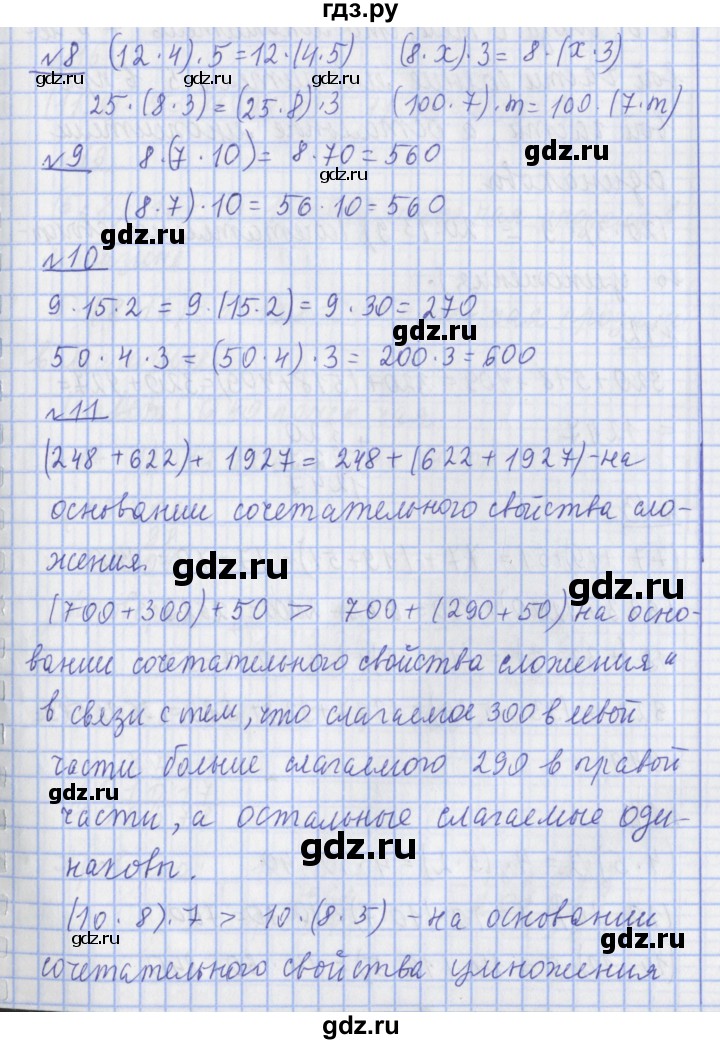 гдз.ру
№8 (12·4)·5=12·(4·5) (8·x)·3=8·(x·3)
gdz.ru gdz.ru gdz.ru
25·(8·3)=(25·8)·3 (100·7)·m=100·(7·m)
№9 8·(7·10)=8·70=560
gdz.ru gdz.ru
(8·7)·10=56·10=560
gdz.ru
№10
9·15·2=9·(15·2)=9·30=270
gdz.ru
50·4·3=(50·4)·3=200·3=600
№11
(248+622)+1927=248+(622+1927)-на
основании сочетательного свойства сло-
жения.
gdz.ru gdz.ru
(700+300)+50 > 700+(290+50) на осно-
вании сочетательного свойства сложения и
в связи с тем, что слагаемое 300 в левой
части больше слагаемого 290 в правой
gdz.ru gdz.ru
части, а остальные слагаемые оди-
gdz.ru
наковы.
(10·8)·7 > 10·(8·5) -на основании
gdz.ru gdz.ru
сочетательного свойства умножения
gdz.ru